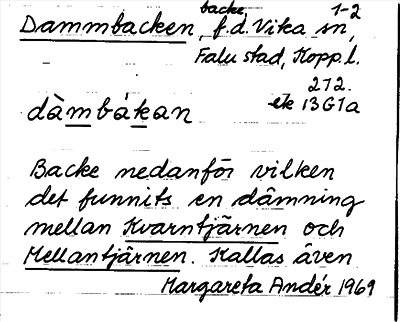 backe, 1-2
Dammbacken, f.d. Vika sn,
Falu stad, Kopp.l.
212.
ek 13G1a
dàmbákan
Backe nedanför vilken
det funnits en dämning
mellan Kvarntjärnen och
Mellantjärnen. Kallas även
Margareta Andér 1969